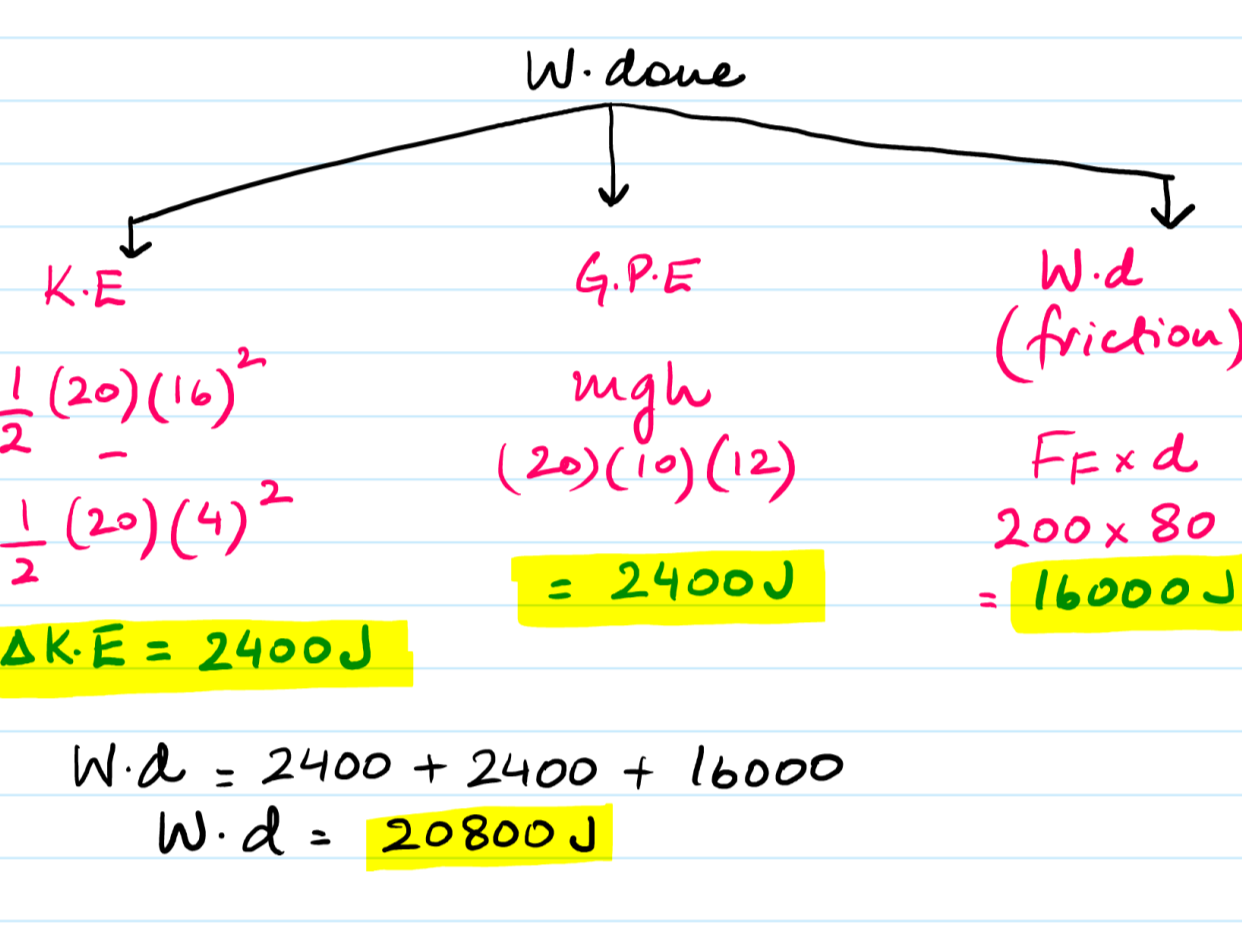 W. done
K.E
1/2 (20)(16)²
-
1/2 (20)(4)²
ΔK.E = 2400J
G.P.E
mgh
(20)(10)(12)
= 2400J
W.d
(friction)
FF x d
200 x 80
= 16000J
W.d = 2400 + 2400 + 16000
W.d = 20800J